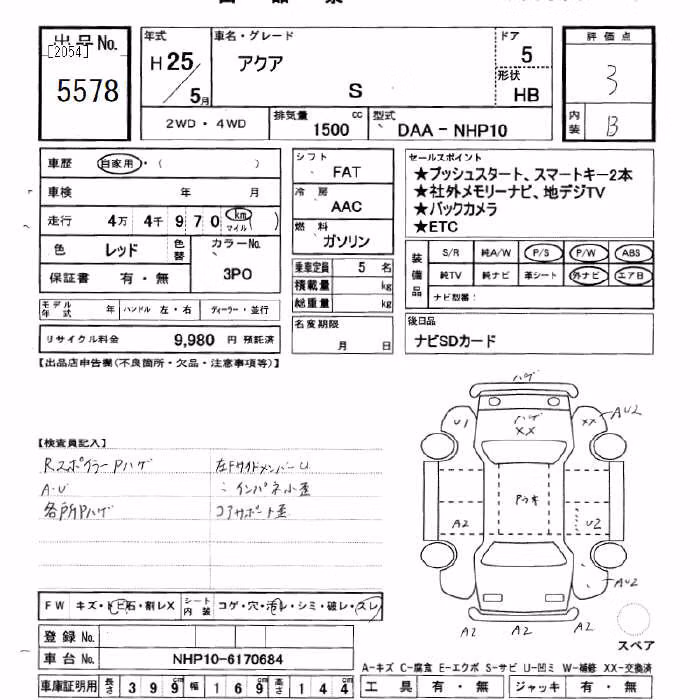 出品No.
[2054]
5578
年式
H 25 / 5月
車名・グレード
アクア
S
ドア
5
形状
HB
評価点
3
内装
B
2WD・4WD
排気量
cc
1500
型式
DAA-NHP10
車歴
自家用・( )
車検 年 月
走行 4万 4千 9 7 0 km マイル ( )
色 レッド
色替
カラーNo.
3P0
保証書 有・無
モデル年式 年
ハンドル 左・右
ディーラー・並行
リサイクル料金 9,980 円 預託済
シフト
FAT
冷房
AAC
燃料
ガソリン
乗車定員 5 名
積載量 kg
総重量 kg
名変期限
月 日
セールスポイント
★プッシュスタート、スマートキー2本
★社外メモリーナビ、地デジTV
★バックカメラ
★ETC
装備品
S/R 純A/W P/S P/W ABS
純TV 純ナビ 革シート 外ナビ エアB
ナビ型番:
後日品
ナビSDカード
【出品店申告欄(不良箇所・欠品・注意事項等)】
【検査員記入】
Rスポイラー Pハゲ
A・U
各所Pハゲ
左Fサイドメンバー U
〃 インパネ小歪
コアサポート歪
ハゲ
ハゲ
XX
U1
XX
AU2
A2
U2
AU2
A2
A2
A2
スペア
FW キズ・トビ石・割レX
シート内装 コゲ・穴・汚レ・シミ・破レ・スレ
登録No.
車台No. NHP10-6170684
車庫証明用 長さ 3 9 9 cm 幅 1 6 9 cm 高さ 1 4 4 cm
A-キズ C-腐食 E-エクボ S-サビ U-凹ミ W-補修 XX-交換済
工具 有・無
ジャッキ 有・無